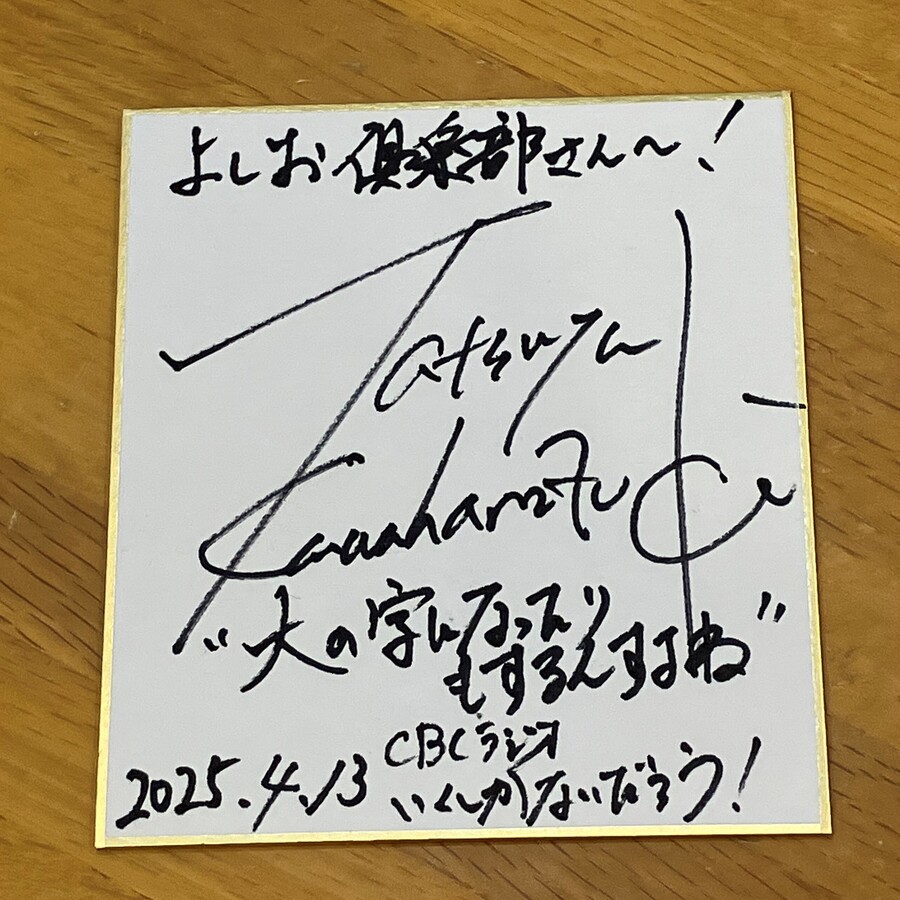 よしお倶楽部さん〜!
Tatsuya
Kawaharazuka
"大の字になったり
もするんすよね"
2025.4.13
CBCラジオ
いくしかないだろう!